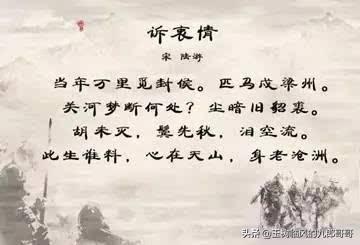 诉衷情
宋 陆游
当年万里觅封侯。匹马戍梁州。
关河梦断何处？尘暗旧貂裘。
胡未灭，鬓先秋，泪空流。
此生谁料，心在天山，身老沧洲。
头条 @玉树临风的九郎哥哥